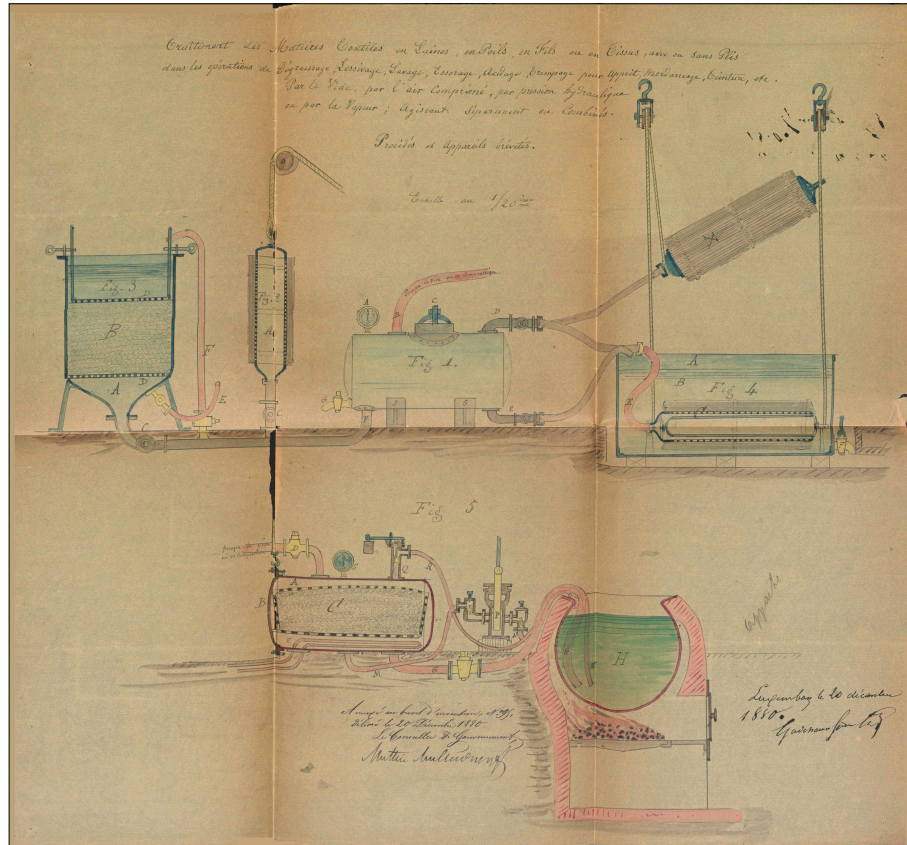 Traitement des Matières Textiles en Laines, en Poils, en Fils ou en Tissus, avec ou sans Plis
dans les opérations de Dégraissage, Lessivage, Lavage, Essorage, Acidage, Trempage pour Apprêt, Mordançage, Teinture, etc.
Par le Vide, par l'air Comprimé, par pression hydraulique
ou par la Vapeur ; Agissant Séparément ou Combinés.
Procédés et Appareils brévetés.
Echelle au 1/20
Fig. 3
D
B
A
D
C
F
E
Fig. 2
A
C
A
B
C
D
Fig. 1.
E
X
A
B
Fig 4
Fig 5
A
B
C
Q
R
P
M
G
H
Annexé au brevet d'invention
délivré le 20 Décembre 1880.
Le Conseiller de Gouvernement,
Luxembourg le 20 décembre
1880.